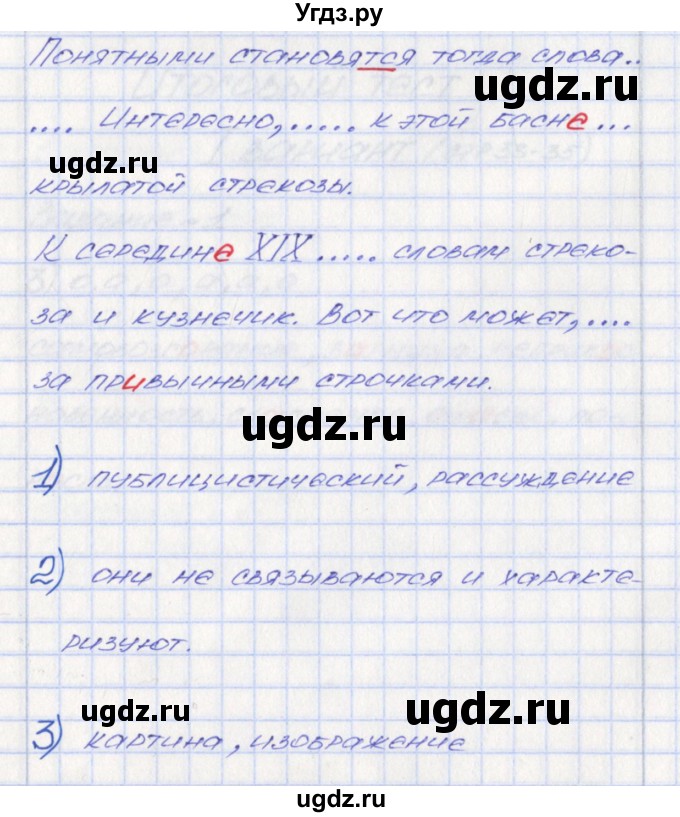 Угдз.ру
Понятными становятся тогда слова..
ugdz.ru
.... Интересно, ..... к этой басне ...
ugdz.ru
крылатой стрекозы.
К середине XIX ..... словам стреко-
за и кузнечик. Вот что может, ....
за привычными строчками.
ugdz.ru
1) публицистический, рассуждение
2) они не связываются и характе-
ugdz.ru
ризуют.
ugdz.ru ugdz.ru
3) картина, изображение
ugdz.ru